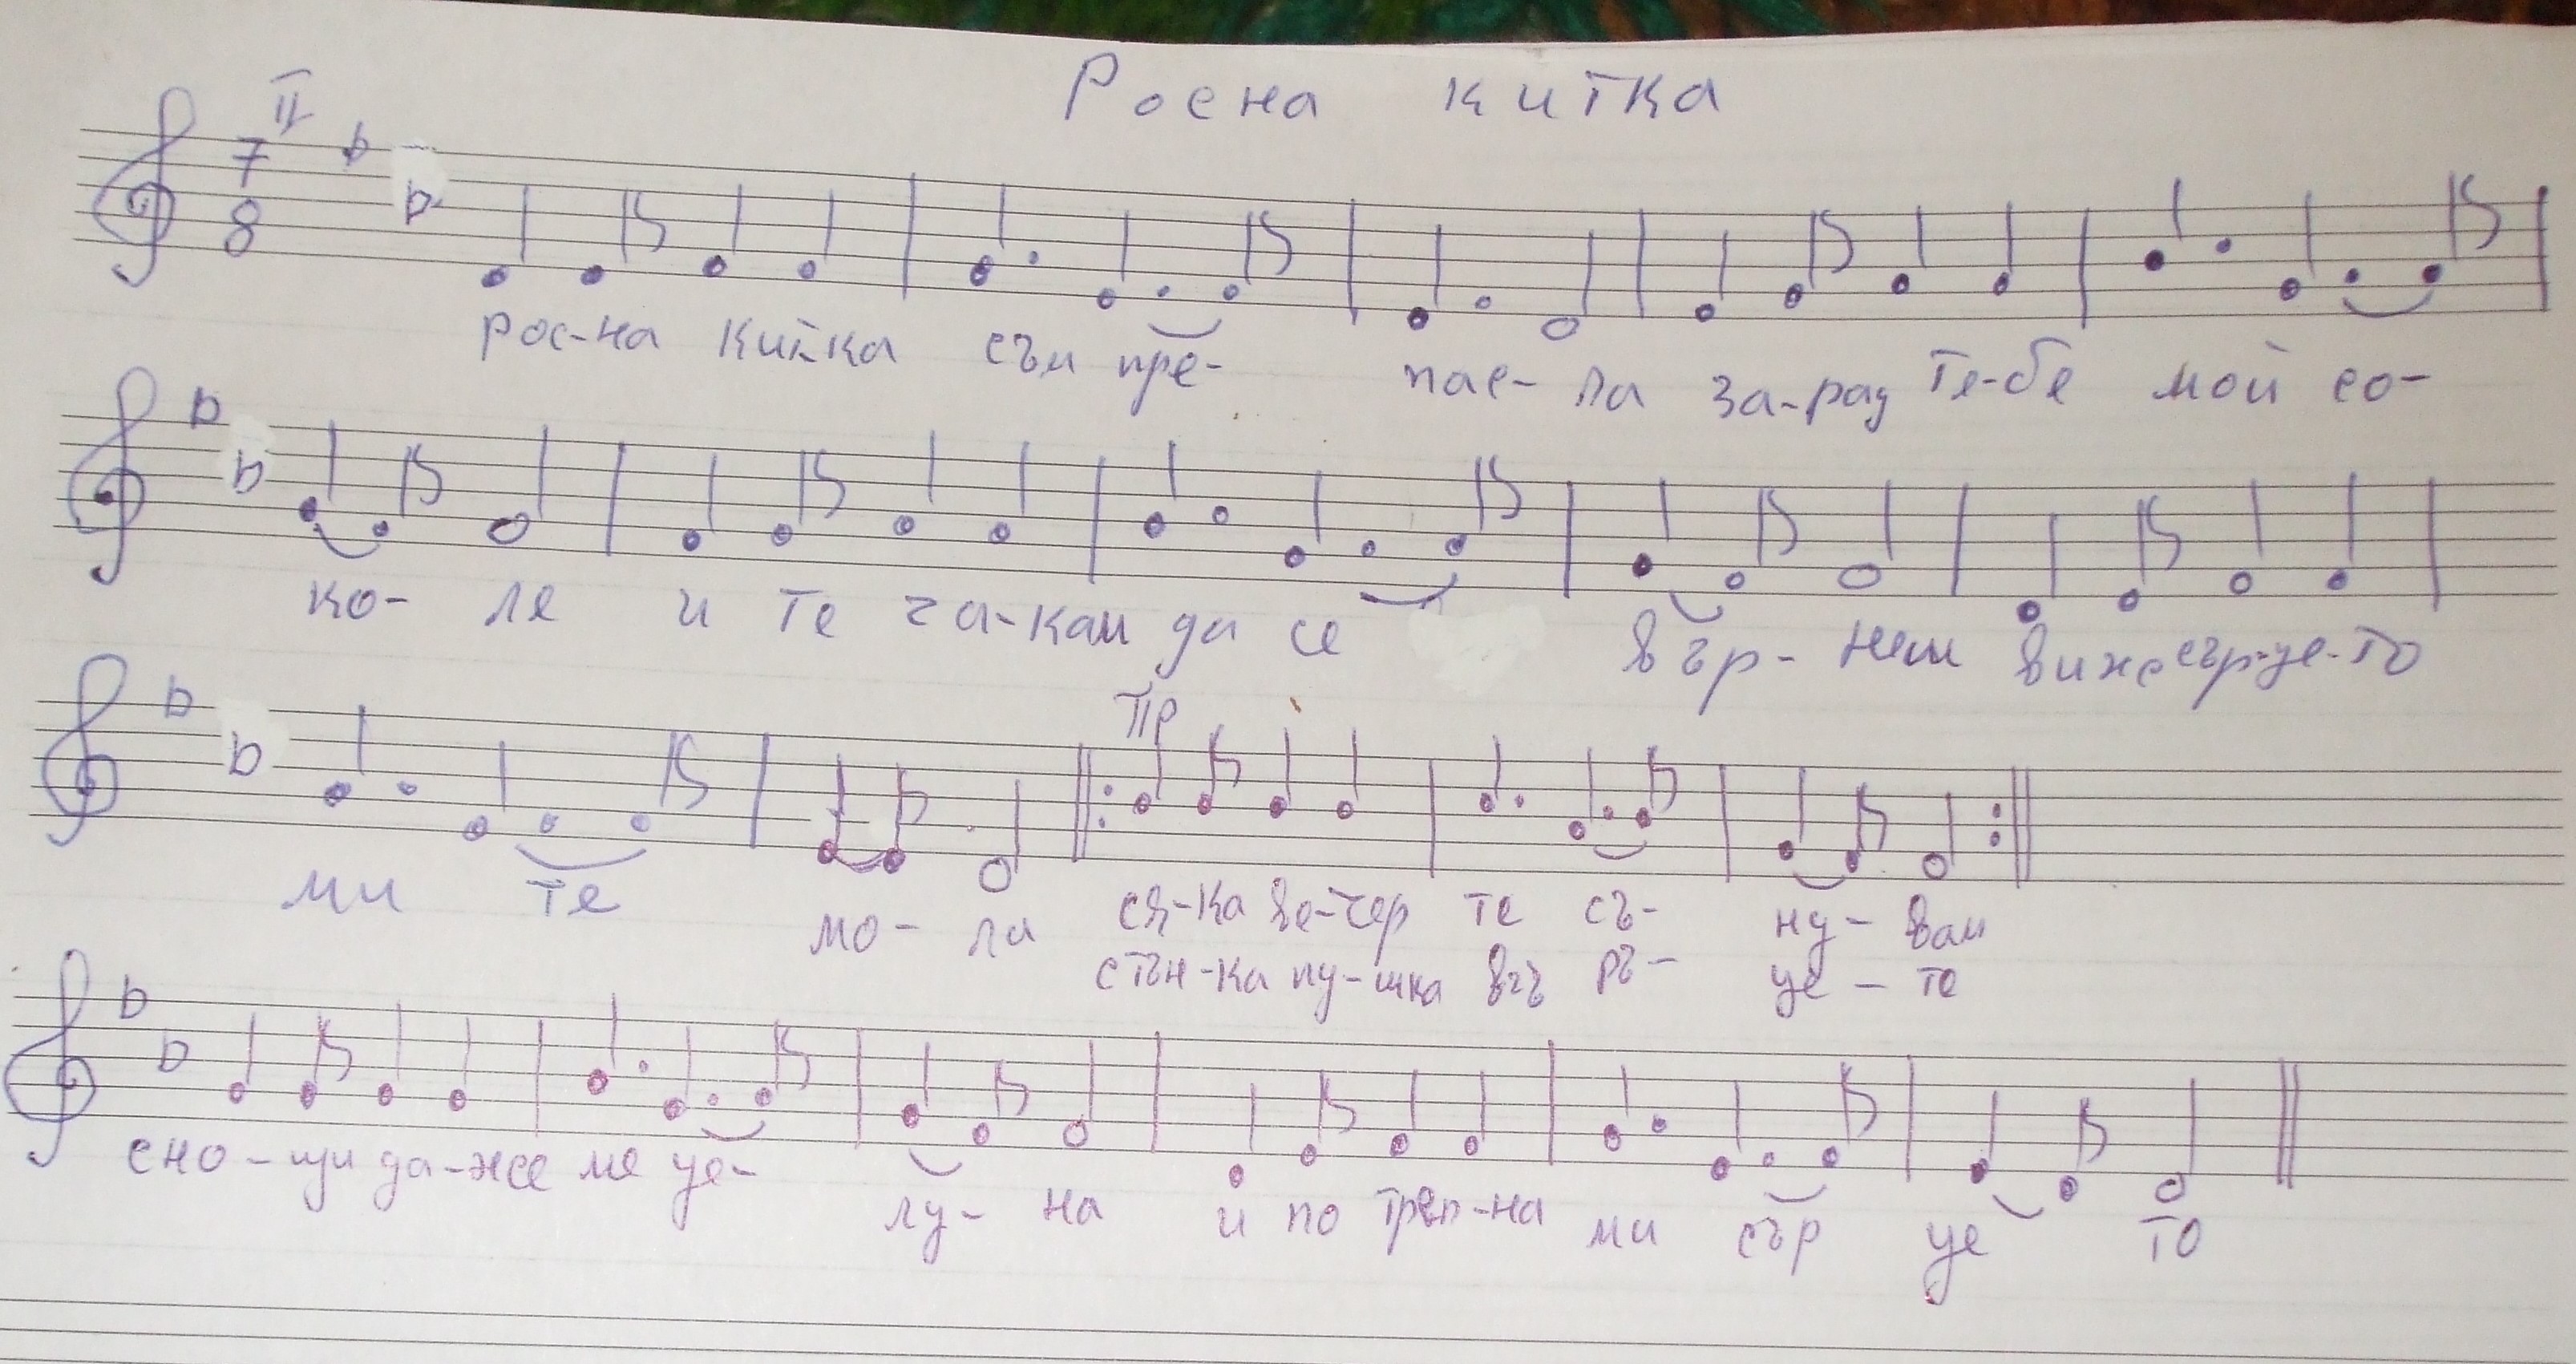 Росна китка
II
7
8
рос-на китка съм пре- пас-ла за-рад те-бе мой со-
ко- ле и те ча-кам да се вър- неш виж сър-це-то
Пр
ми те мо- ли ся-ка ве-чер те съ- ну- вам
стън-ка пу-шка във ръ- це - те
сно-щи да-же ме це- лу- на и по треп-на ми сър це то